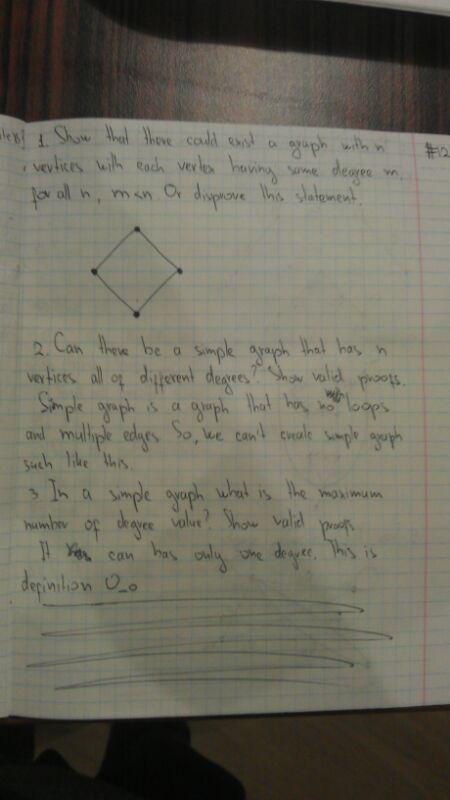 1. Show that there could exist a graph with n #12
vertices with each vertex having same degree m,
for all n, m<n Or disprove this statement.
2. Can there be a simple graph that has n
vertices all of different degrees? Show valid proofs.
Simple graph is a graph that has no loops
and multiple edges So, we can't create simple graph
such like this.
3 In a simple graph what is the maximum
number of degree value? Show valid proofs
It can has only one degree. This is
definition O_o